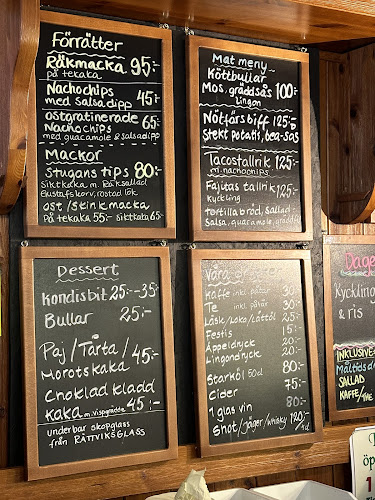 Förrätter
Räkmacka 95:-
på tekaka
Nachochips
med Salsadipp 45:-
ostgratinerade
Nachochips 65:-
med guacamole & salsadipp
Mackor
Stugans tips 80:-
Siktkaka m. Räksallad
Gustafskorv, rostad lök
ost/skinkmacka
På tekaka 55:- Siktkaka 65:-
Mat meny
Köttbullar
Mos. gräddsås 100:-
Lingon
Nötfärsbiff 125:-
Stekt potatis, bea-sås
Tacostallrik 125:-
m. nachochips
Fajitas tallrik 125:-
Kyckling
tortillabröd, Sallad
Salsa, guacamole, gräddfil
Dessert
Kondisbit 25:- -35:-
Bullar 25:-
Paj/Tårta/
Morotskaka 45:-
Choklad kladd
kaka m. vispgrädde 45:-
underbar skopglass
från RÄTTVIKSGLASS
Våra drycker
Kaffe inkl. påtår 30:-
Te inkl. påtår 30:-
Läsk/Loka/Lättöl 25:-
Festis 15:-
Äppeldryck 20:-
Lingondryck 20:-
Starköl 50cl 80:-
Cider 75:-
1 glas vin 80:-
Shot/Jäger/whisky 120:/
Dage
Kyckling
& ris
INKLUSIVE:
Måltids d
SALLAD
KAFFE/THE